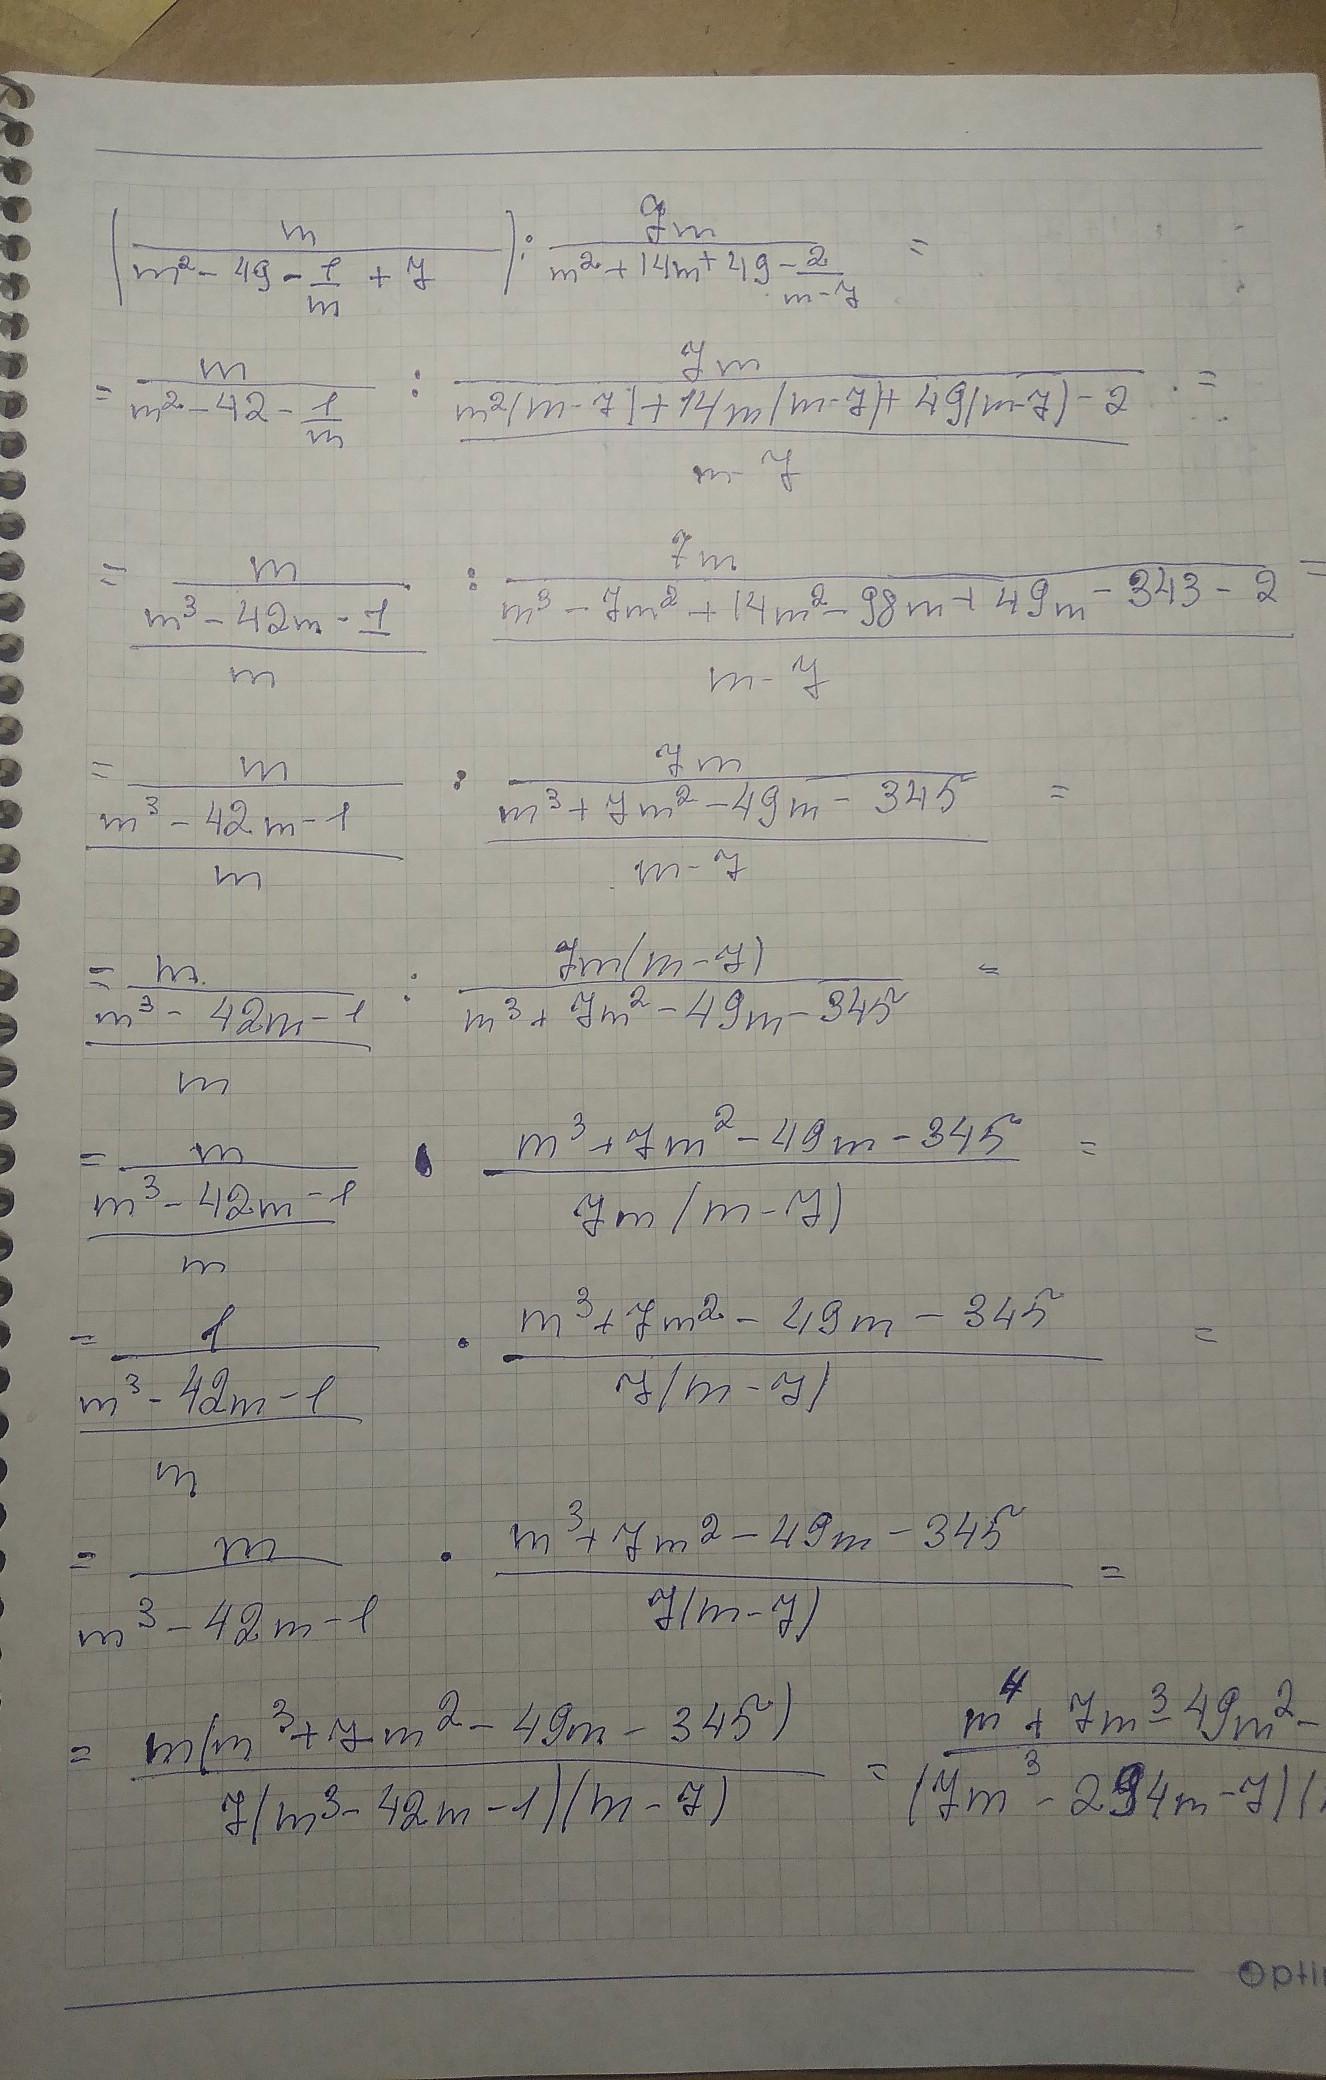 (m/(m² - 49 - 1/m + 7)) : 7m/(m² + 14m + 49 - 2/(m-7)) =
= m/(m² - 42 - 1/m) : 7m/((m²(m-7) + 14m(m-7) + 49(m-7) - 2)/(m-7)) =
= m/((m³ - 42m - 1)/m) : 7m/((m³ - 7m² + 14m² - 98m + 49m - 343 - 2)/(m-7)) =
= m/((m³ - 42m - 1)/m) : 7m/((m³ + 7m² - 49m - 345)/(m-7)) =
= m/((m³ - 42m - 1)/m) : 7m(m-7)/(m³ + 7m² - 49m - 345) =
= m/((m³ - 42m - 1)/m) · (m³ + 7m² - 49m - 345)/(7m(m-7)) =
= 1/((m³ - 42m - 1)/m) · (m³ + 7m² - 49m - 345)/(7(m-7)) =
= m/(m³ - 42m - 1) · (m³ + 7m² - 49m - 345)/(7(m-7)) =
= m(m³ + 7m² - 49m - 345)/(7(m³ - 42m - 1)(m-7)) = (m⁴ + 7m³ - 49m² -)/((7m³ - 294m - 7)(
Opti